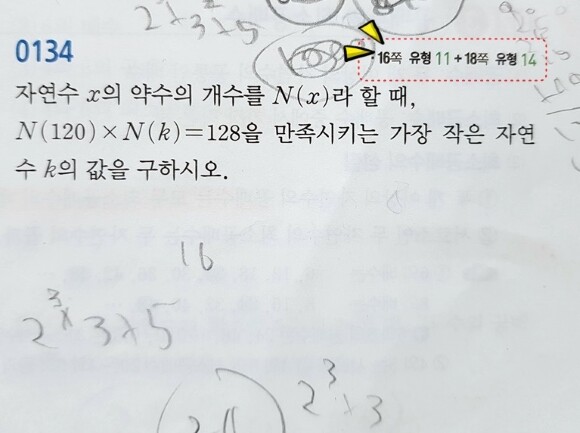 2³×3×5
0134
· 16쪽 유형 11 + 18쪽 유형 14
자연수 x의 약수의 개수를 N(x)라 할 때,
N(120)×N(k)=128을 만족시키는 가장 작은 자연
수 k의 값을 구하시오.
16
2³×3×5
2³×3